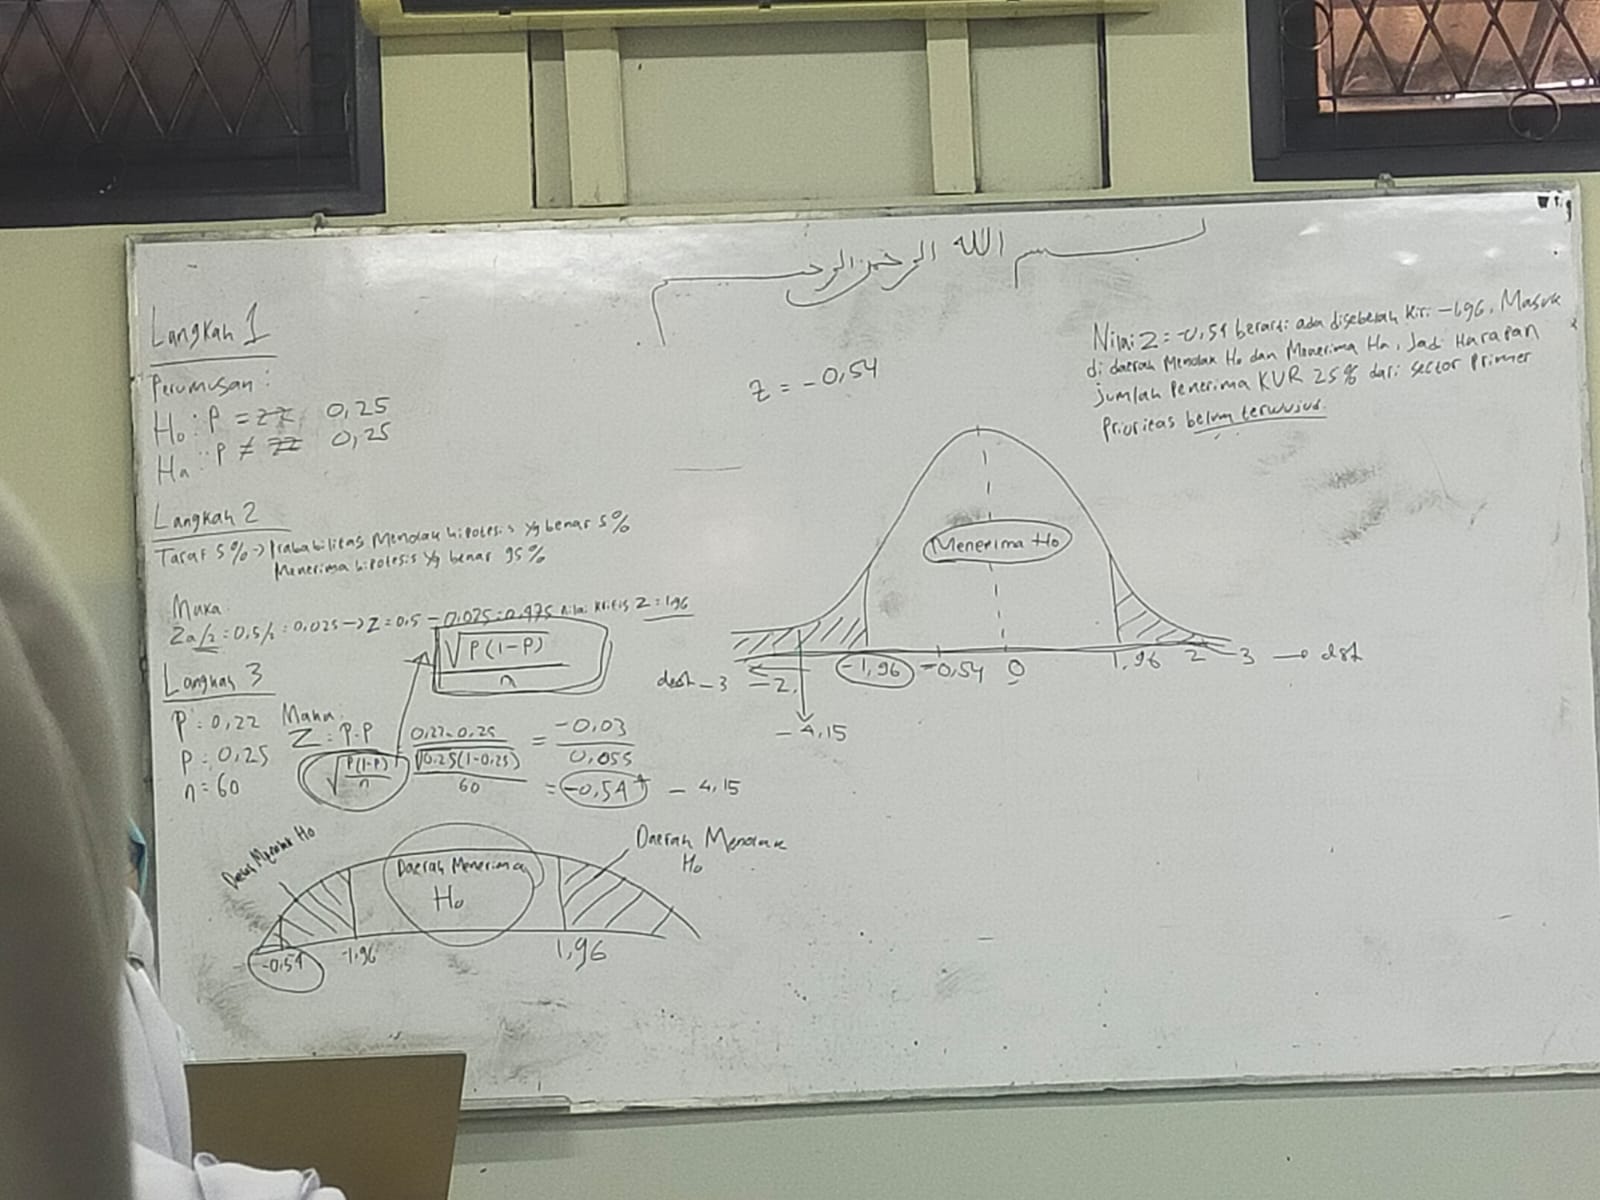 بسم الله الرحمن الرحيم
Langkah 1
Perumusan :
Ho : P = 0,25
Ha : P ≠ 0,25
Langkah 2
Taraf 5% -> Prababilitas Menolak hipotesis yg benar 5%
Menerima hipotesis yg benar 95%
Maka
Za/2 = 0,5/2 = 0,025 -> Z = 0,5 - 0,025 = 0,475 nilai kritis Z = 1,96
√P(1-P)
n
Langkah 3
P = 0,22
P = 0,25
n = 60
Maka:
Z = P-P 0,22-0,25 = -0,03
√P(1-P) √0.25(1-0,25) 0,055
n 60 = -0,54 - 4,15
Daerah Menolak Ho
Daerah Menerima
Ho
Daerah Menolak
Ho
-0,54 -1,96 1,96
Z = -0,54
Menerima Ho
-3 -2, -1,96 -0,54 0 1,96 2 3 -> dst
-4,15
Nilai Z = -0,54 berarti ada disebelah kiri -1,96, Masuk
di daerah Menolak Ho dan Menerima Ha, Jadi Harapan
jumlah Penerima KUR 25% dari sector Primer
Prioritas belum terwujud.